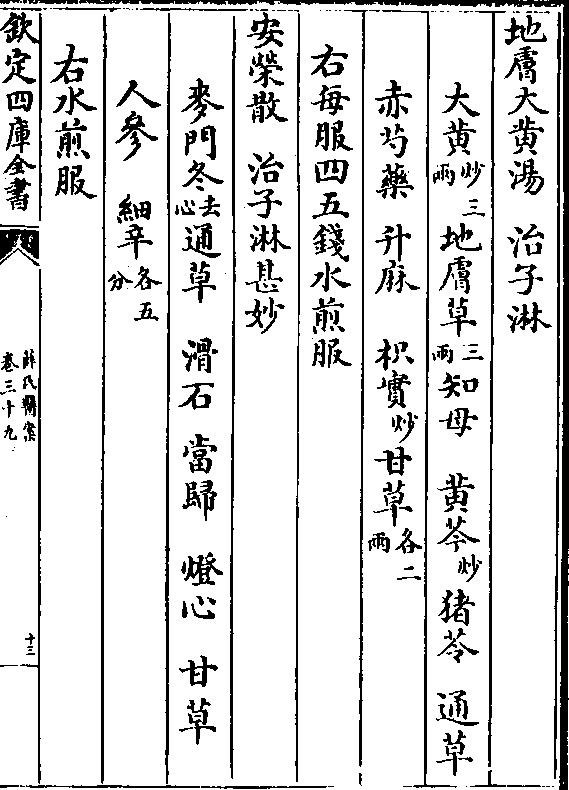 地膚大黄湯　治子淋
大黄炒三兩　地膚草三兩　知母　黄芩炒　猪苓　通草
赤芍藥　升麻　枳實炒　甘草各二兩
右每服四五錢水煎服
安榮散　治子淋甚妙
麥門冬去心　通草　滑石　當歸　燈心　甘草
人參　細辛各五分
右水煎服
欽定四庫全書
薛氏醫案
卷三十九
十三